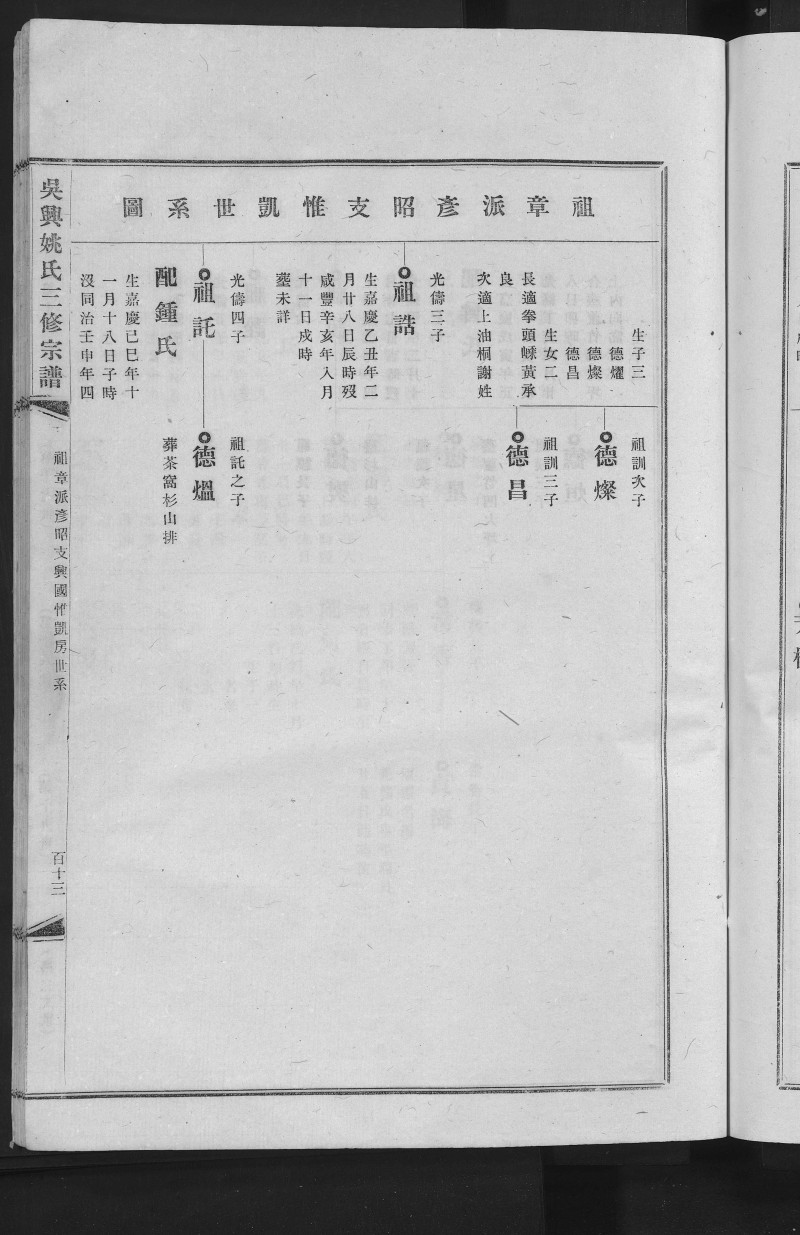 祖章派彥昭支惟凱世系圖
生子三
德燿
德燦
德昌
生女二
長適拳頭嵊黃承
良
次適上油桐謝姓
祖訓次子
德燦
祖訓三子
德昌
光儔三子
祖誥
生嘉慶乙丑年二
月廿八日辰時歿
咸豐辛亥年入月
十一日戍時
塟未詳
光儔四子
祖託
配鍾氏
生嘉慶己巳年十
一月十八日子時
沒同治壬申年四
祖託之子
德熅
葬茶窩杉山排
吳興姚氏三修宗譜
祖章派彥昭支興國惟凱房世系
百十三